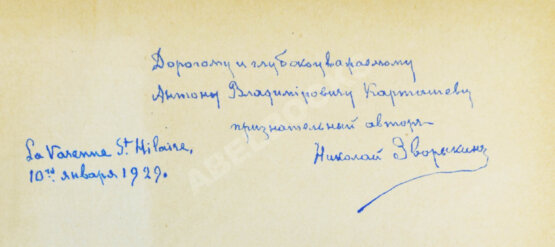 Дорогому и глубокоуважаемому
Антону Владимiровичу Карташеву
признательный авторъ
Николай Зворыкинъ
La Varenne St Hilaire,
10го января 1929.